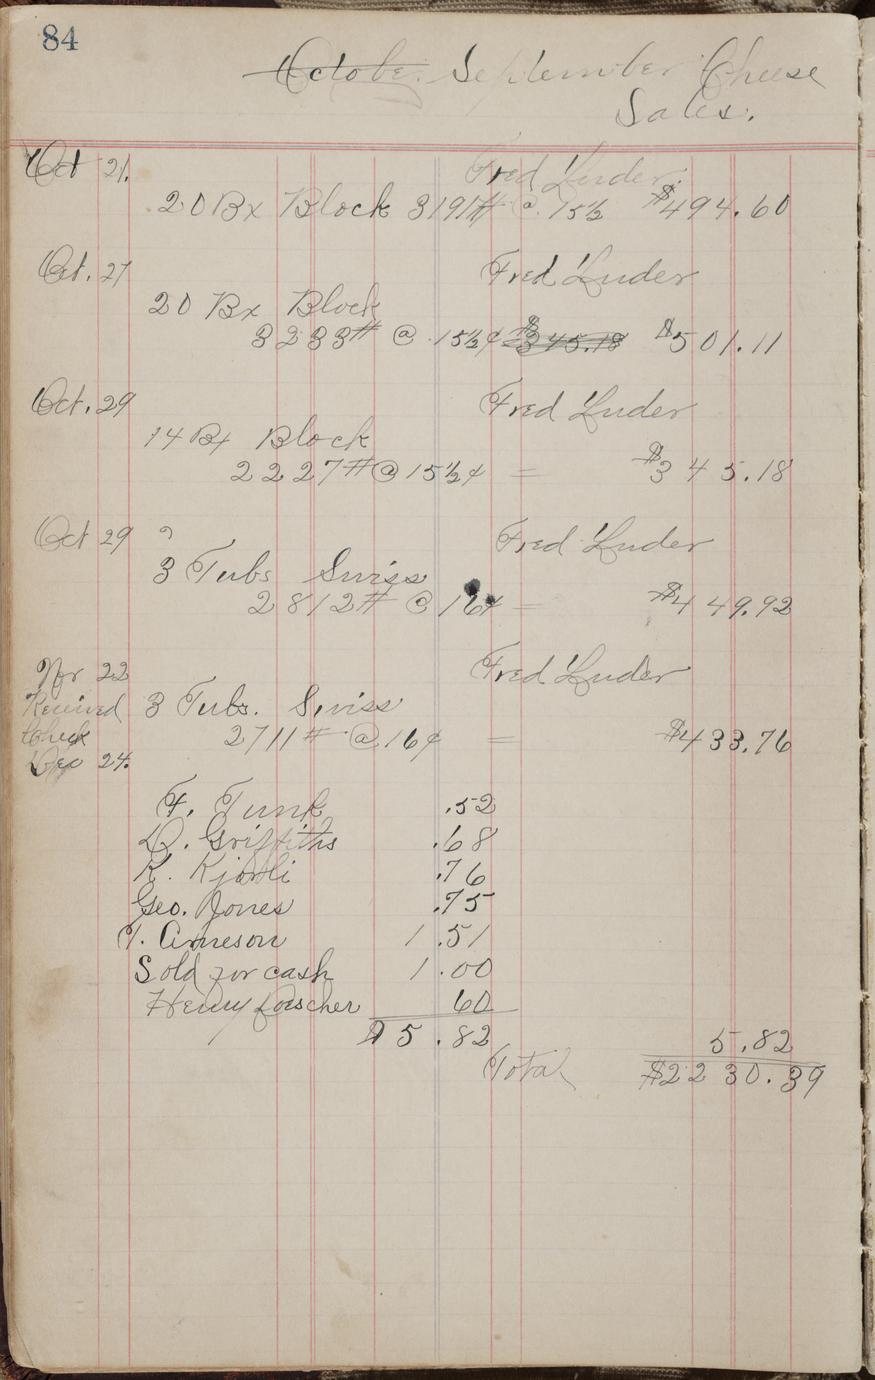 84
October September Cheese
Sales.
Oct 21. Fred Luder.
20 Bx Block 3191# @ 15½ $494.60
Oct. 27 Fred Luder
20 Bx Block
3233# @ .15½¢ $345.18 $501.11
Oct. 29 Fred Luder
14 Bx Block
2227# @ 15½¢ = $345.18
Oct 29 ? Fred Luder
3 Tubs Swiss
2812# @ 16¢ = $449.92
Nov 22 Fred Luder
Received 3 Tubs. Swiss
Check 2711# @ 16¢ = $433.76
Dec 24.
F. Tunk .52
D. Griffiths .68
K. .76
Geo. Jones .75
T. Arneson 1.51
Sold for cash 1.00
Henry 60
$5.82 5.82
Total $2230.39